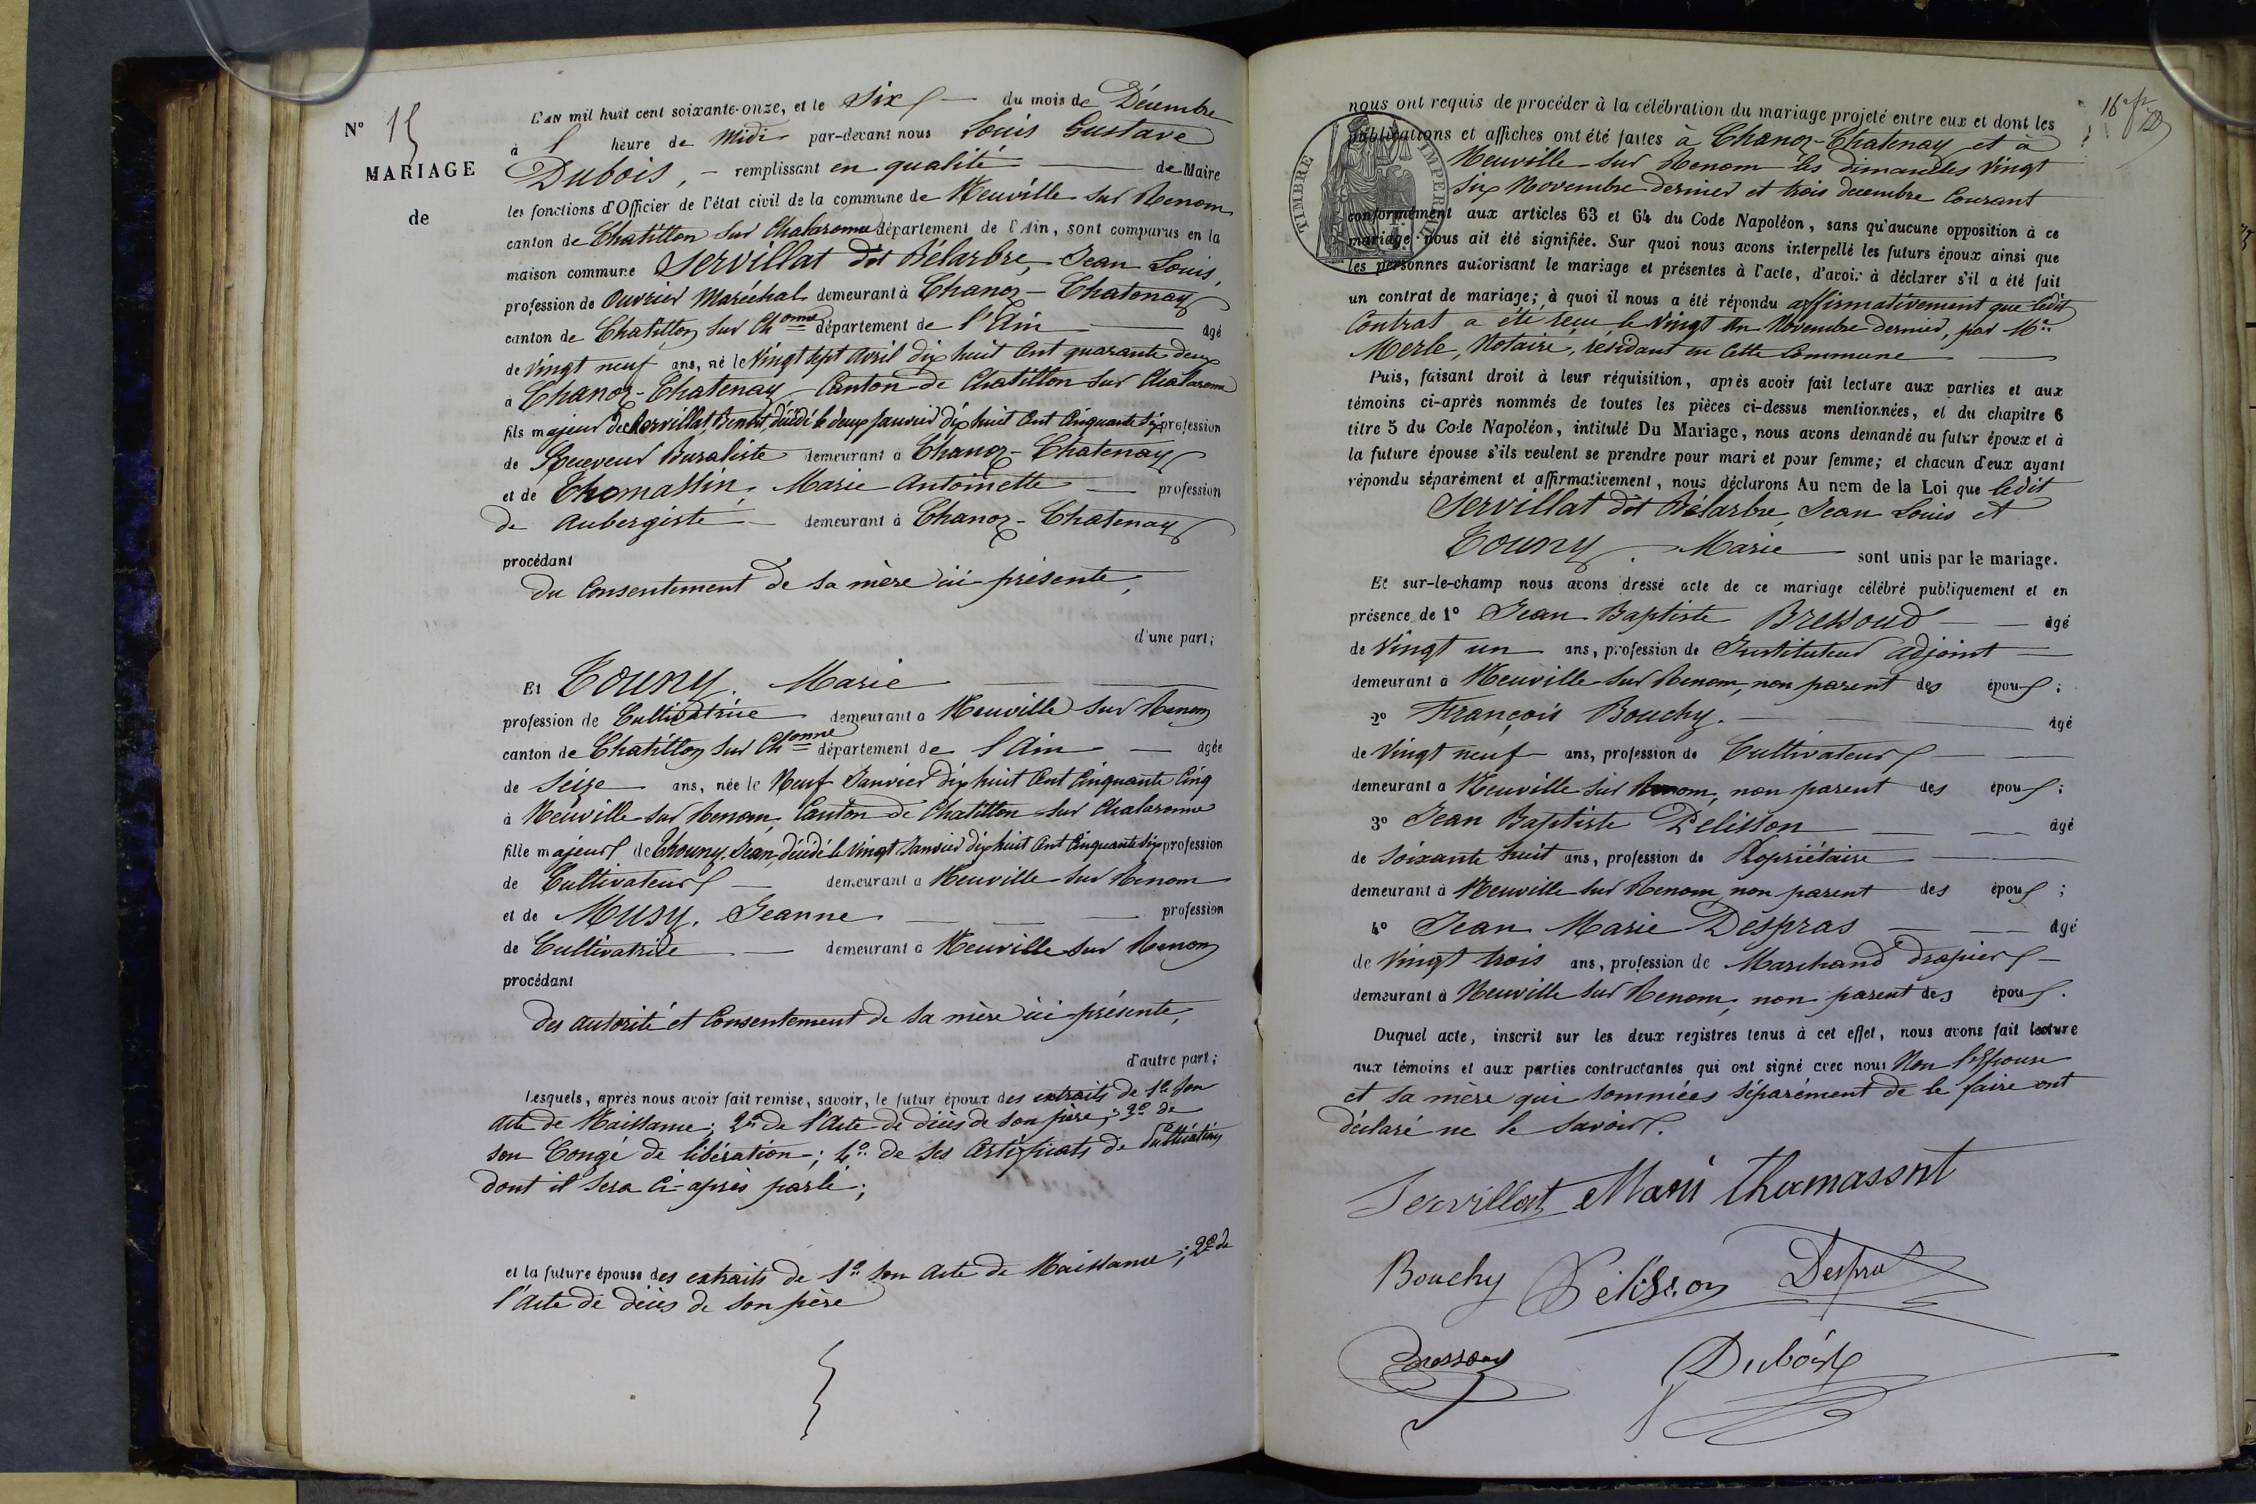 N° 15
MARIAGE
de
L'AN mil huit cent soixante-onze, et le Six du mois de Décembre
à l heure de Midi par-devant nous Louis Gustave
Dubois, - remplissant en qualité de Maire
les fonctions d'Officier de l'état civil de la commune de Neuville sur Renom
canton de Chatillon sur Chalaronne département de l'Ain, sont comparus en la
maison commune Servillat dit Bélarbre, Jean Louis,
profession de Ouvrier Maréchal demeurant à Chanoz-Chatenay
canton de Chatillon sur Ch^onne département de l'Ain âgé
de Vingt neuf ans, né le Vingt sept Avril dix huit Cent quarante deux
à Chanoz-Chatenay Canton de Chatillon sur Chalaronne
fils majeur de Servillat, Benoit, décédé le deux Janvier dix huit Cent Cinquante Six profession
de Receveur Buraliste demeurant à Chanoz-Chatenay
et de Thomassin, Marie Antoinette profession
de Aubergiste demeurant à Chanoz-Chatenay
procédant
du Consentement de sa mère ici présente,
d'une part;
Et Touny, Marie
profession de Cultivatrice demeurant à Neuville sur Renom
canton de Chatillon sur Ch^onne département de l'Ain âgée
de Seize ans, née le Neuf Janvier dix huit Cent Cinquante Cinq
à Neuville sur Renom, Canton de Chatillon sur Chalaronne
fille majeur de Thouny, Jean, décédé le Vingt Janvier dix huit Cent Cinquante Six profession
de Cultivateur demeurant à Neuville sur Renom
et de Musy, Jeanne profession
de Cultivatrice demeurant à Neuville sur Renom
procédant
des autorité et Consentement de sa mère ici présente,
d'autre part;
Lesquels, après nous avoir fait remise, savoir, le futur époux des extraits de 1° Son
Acte de Naissance; 2° de l'Acte de décès de son père; 3° de
son Congé de libération; 4° de ses Certificats de Publication
dont il sera ci-après parlé;
et la future épouse des extraits de 1° Son Acte de Naissance; 2° de
l'Acte de décès de son père
nous ont requis de procéder à la célébration du mariage projeté entre eux et dont les
publications et affiches ont été faites à Chanoz-Chatenay et à
Neuville-sur Renom les dimanches Vingt
Six Novembre dernier et trois décembre Courant
conformément aux articles 63 et 64 du Code Napoléon, sans qu'aucune opposition à ce
mariage nous ait été signifiée. Sur quoi nous avons interpellé les futurs époux ainsi que
les personnes autorisant le mariage et présentes à l'acte, d'avoir à déclarer s'il a été fait
un contrat de mariage; à quoi il nous a été répondu affirmativement que ledit
Contrat a été reçu le Vingt Un Novembre dernier, par M^e
Merle, Notaire, résidant en cette Commune
Puis, faisant droit à leur réquisition, après avoir fait lecture aux parties et aux
témoins ci-après nommés de toutes les pièces ci-dessus mentionnées, et du chapitre 6
titre 5 du Code Napoléon, intitulé Du Mariage, nous avons demandé au futur époux et à
la future épouse s'ils veulent se prendre pour mari et pour femme; et chacun d'eux ayant
répondu séparément et affirmativement, nous déclarons Au nom de la Loi que ledit
Servillat dit Bélarbre, Jean Louis et
Touny, Marie sont unis par le mariage.
Et sur-le-champ nous avons dressé acte de ce mariage célébré publiquement et en
présence de 1° Jean Baptiste Bressoud âgé
de Vingt un ans, profession de Instituteur adjoint
demeurant à Neuville sur Renom, non parent des épou ;
2° François Bouchy. âgé
de Vingt neuf ans, profession de Cultivateur
demeurant à Neuville sur Renom, non parent des épou ;
3° Jean Baptiste Pelisson âgé
de Soixante huit ans, profession de Propriétaire
demeurant à Neuville sur Renom, non parent des épou ;
4° Jean Marie Despras âgé
de Vingt trois ans, profession de Marchand drapier
demeurant à Neuville sur Renom, non parent des épou .
Duquel acte, inscrit sur les deux registres tenus à cet effet, nous avons fait lecture
aux témoins et aux parties contractantes qui ont signé avec nous Non l'Epouse
et sa mère qui sommées séparément de le faire ont
déclaré ne le savoir.
TIMBRE IMPERIAL
Servillat Marii Thomassnt
Bouchy Pelisson Despras
Bressoud Dubois